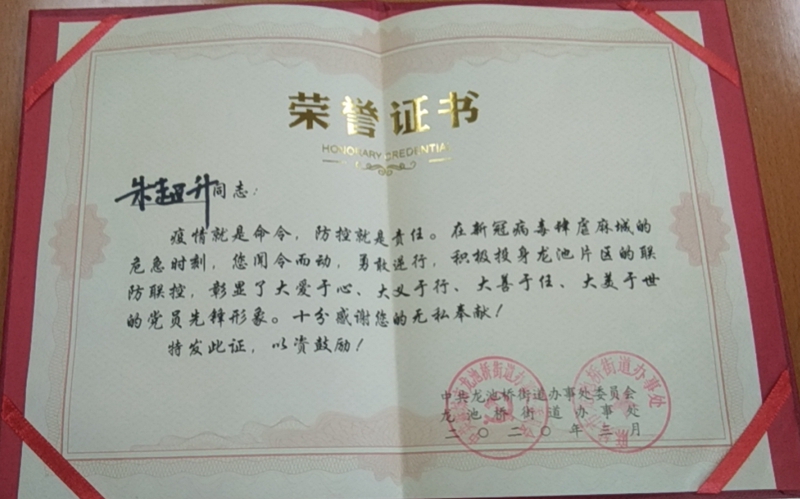 荣誉证书
HONORARY CREDENTIAL
朱超升同志:
疫情就是命令,防控就是责任。在新冠病毒肆虐麻城的
危急时刻,您闻令而动,勇敢逆行,积极投身龙池片区的联
防联控,彰显了大爱于心、大义于行、大善于任、大美于世
的党员先锋形象。十分感谢您的无私奉献!
特发此证,以资鼓励!
中共龙池桥街道办事处委员会
龙池桥街道办事处
二〇二〇年三月